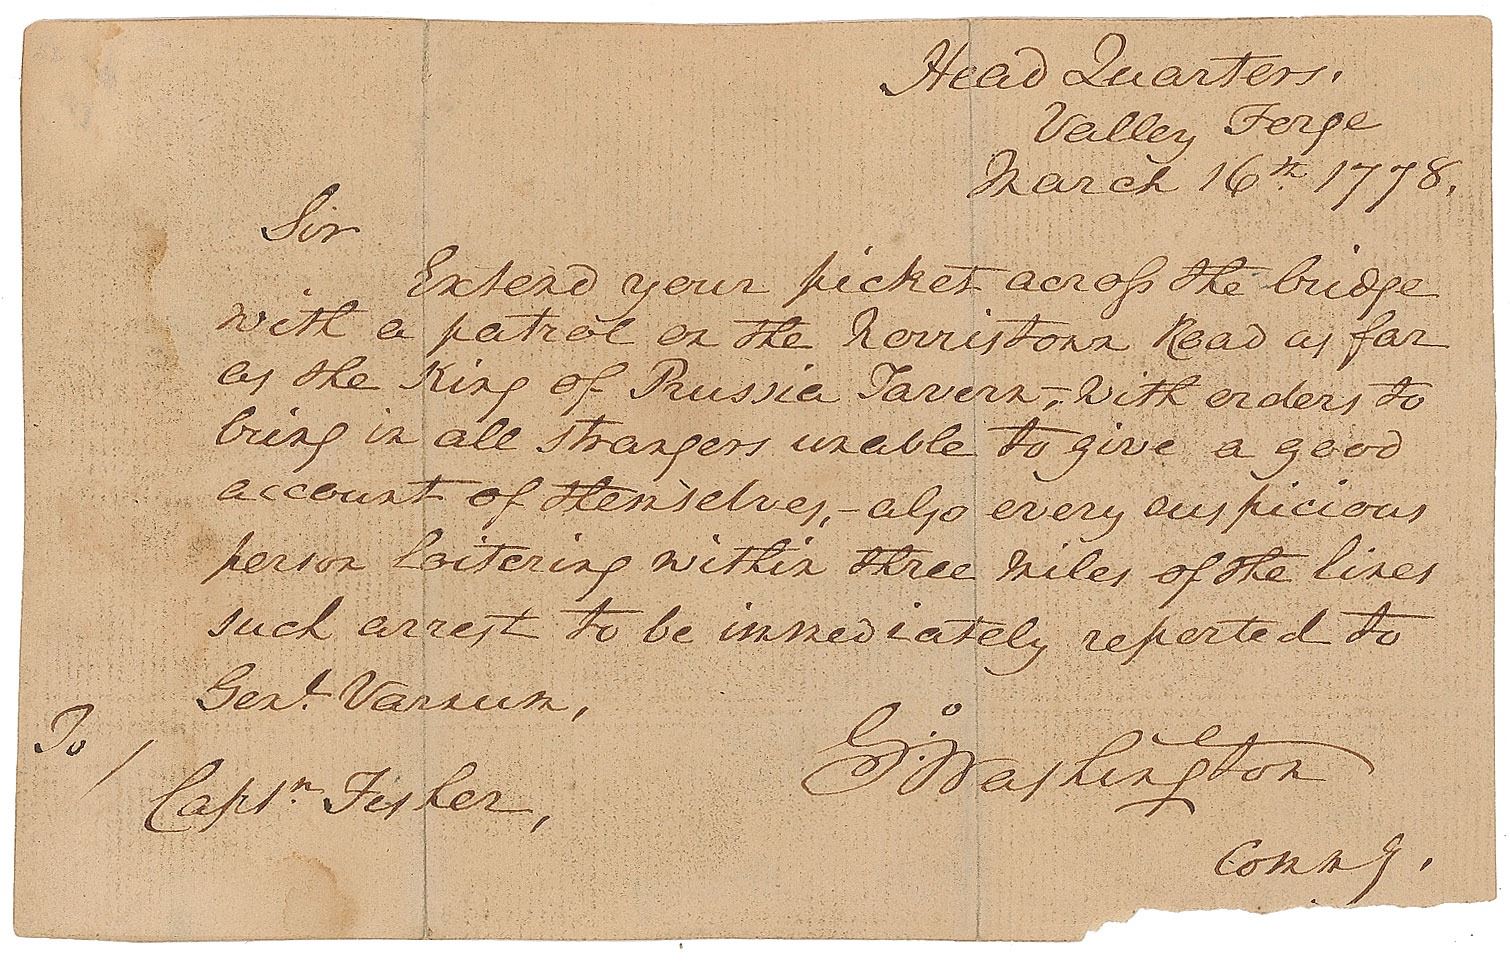 Head Quarters.
Valley Forge
March 16th 1778.
Sir
Extend your picket across the bridge
with a patrol on the Norristown Road as far
as the King of Prussia Tavern,- with orders to
bring in all strangers unable to give a good
account of themselves,- also every suspicious
person loitering within three miles of the lines
such arrest to be immediately reported to
Genl. Varnum,
Go. Washington
Commg.
To /
Captn Fisher,